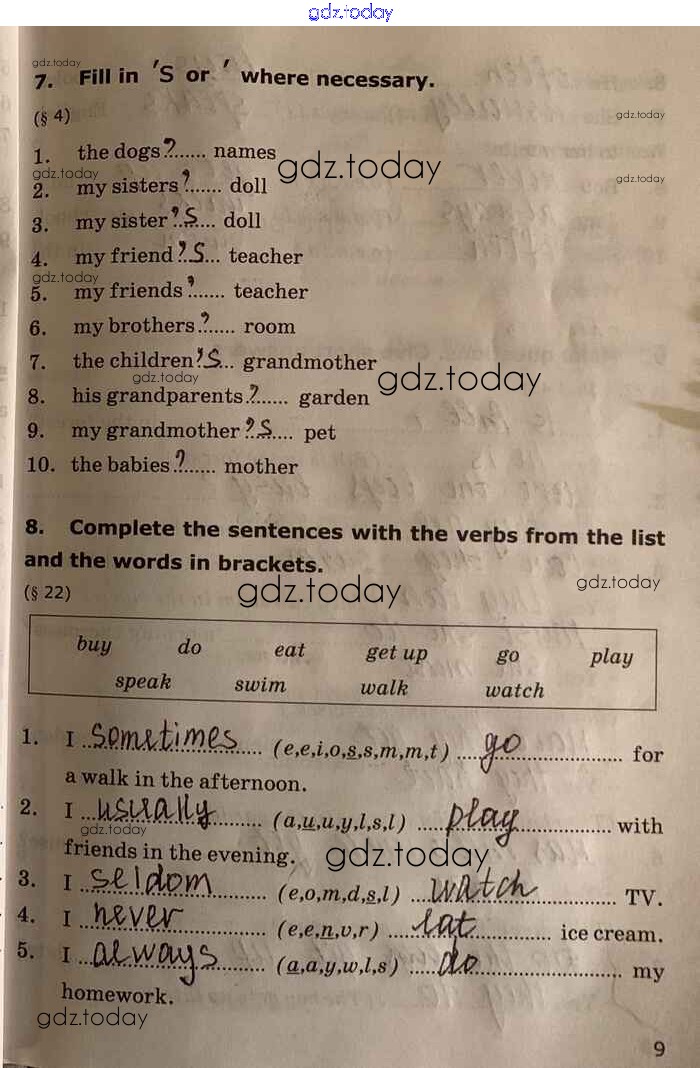 gdz.today
gdz.today
7. Fill in 's or ' where necessary.
gdz.today
(§ 4)
1. the dogs'...... names
gdz.today
gdz.today
gdz.today
2. my sisters'...... doll
3. my sister's... doll
4. my friend's... teacher
gdz.today
5. my friends'...... teacher
6. my brothers'...... room
7. the children's... grandmother
gdz.today
gdz.today
8. his grandparents'...... garden
9. my grandmother's.... pet
10. the babies'...... mother
8. Complete the sentences with the verbs from the list
and the words in brackets.
gdz.today
gdz.today
(§ 22)
buy do eat get up go play
speak swim walk watch
1. I ..sometimes.... (e,e,i,o,s,s,m,m,t) ....go.................... for
a walk in the afternoon.
2. I ...usually........ (a,u,u,y,l,s,l) .....play............... with
gdz.today
friends in the evening.
gdz.today
3. I ..seldom......... (e,o,m,d,s,l) ...watch............ TV.
4. I ..never............ (e,e,n,v,r) .....eat............ ice cream.
5. I ..always........ (a,a,y,w,l,s) .....do........................ my
homework.
gdz.today
9